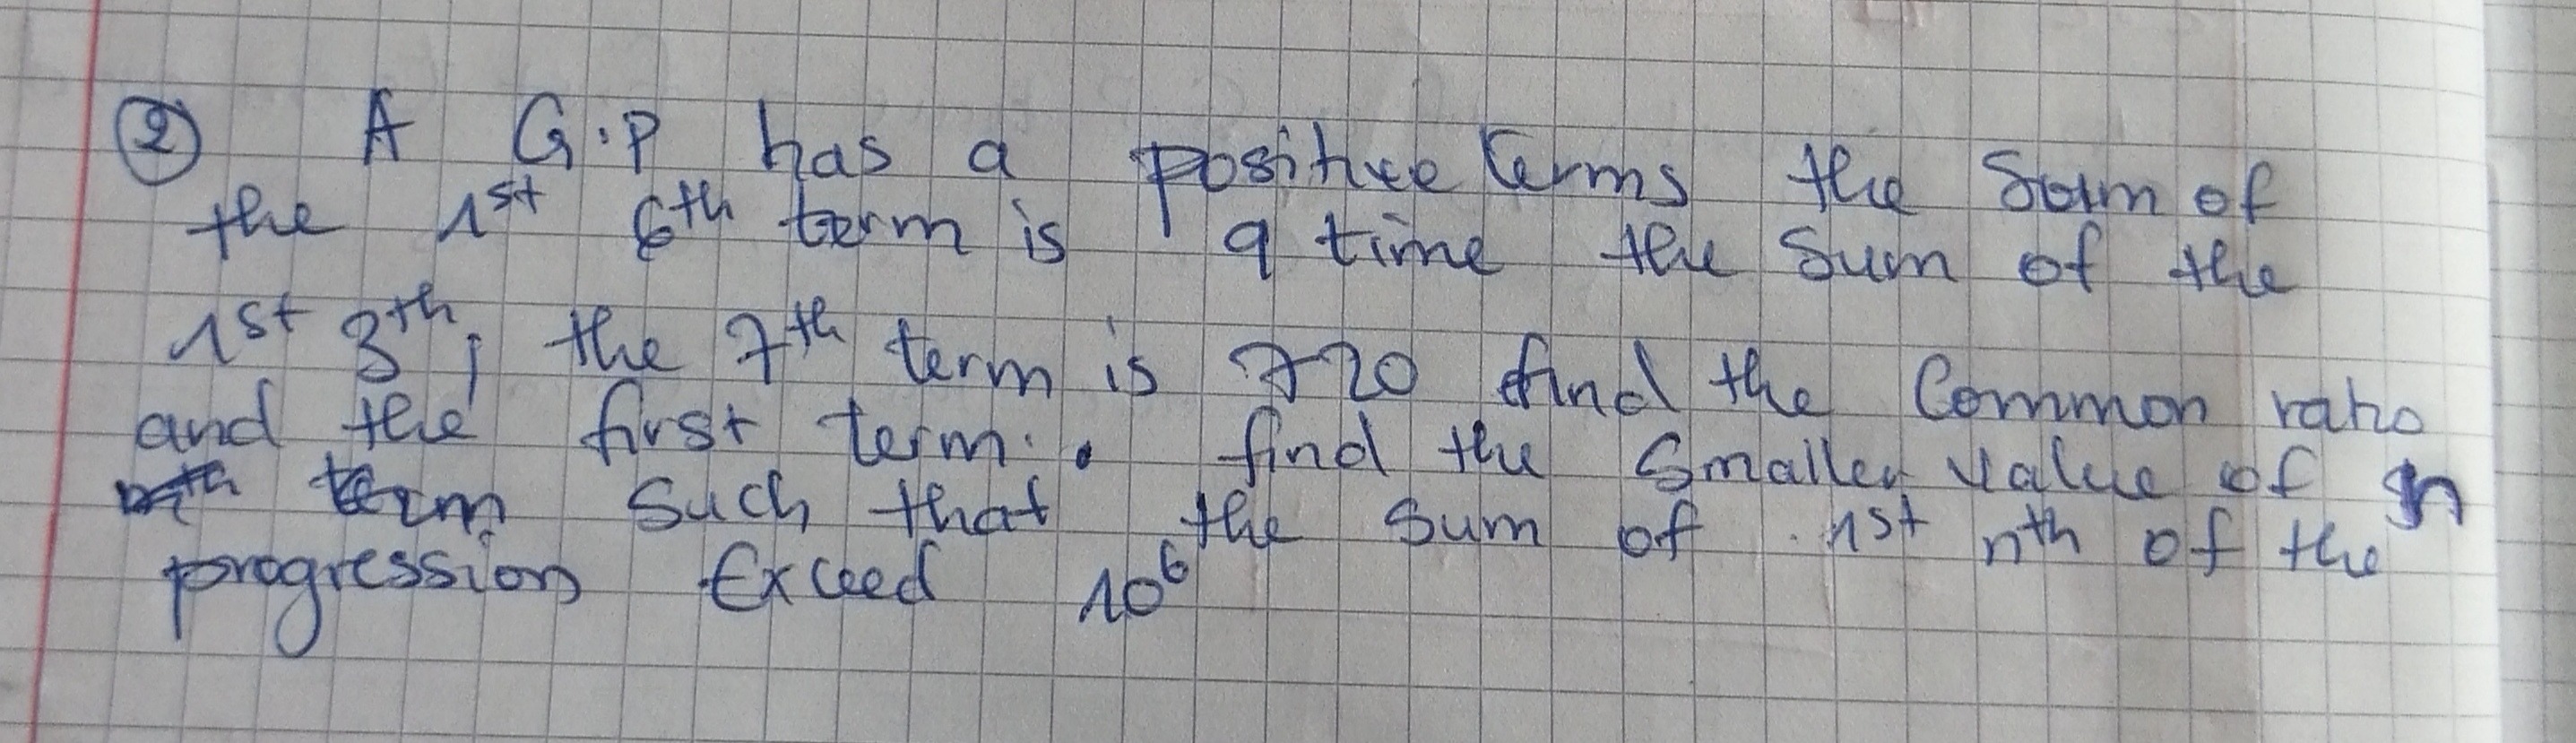 ② A G.P has a positive terms the Sum of
the 1st 6th term is 9 time the sum of the
1st 3th, the 7th term is 720 find the Common ratio
and the first term. find the Smaller value of n
term such that the sum of 1st nth of the
progression Exceed 10^6